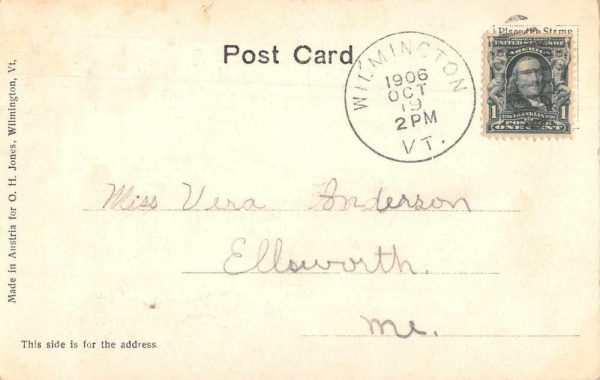 Post Card
Place the Stamp
UNITED STATES OF
AMERICA
FRANKLIN
1 POSTAGE 1
ONE CENT
WILMINGTON
1906
OCT
19
2 PM
VT.
Miss Vera Anderson
Ellsworth.
Me.
This side is for the address.
Made in Austria for O. H. Jones, Wilmington, Vt,